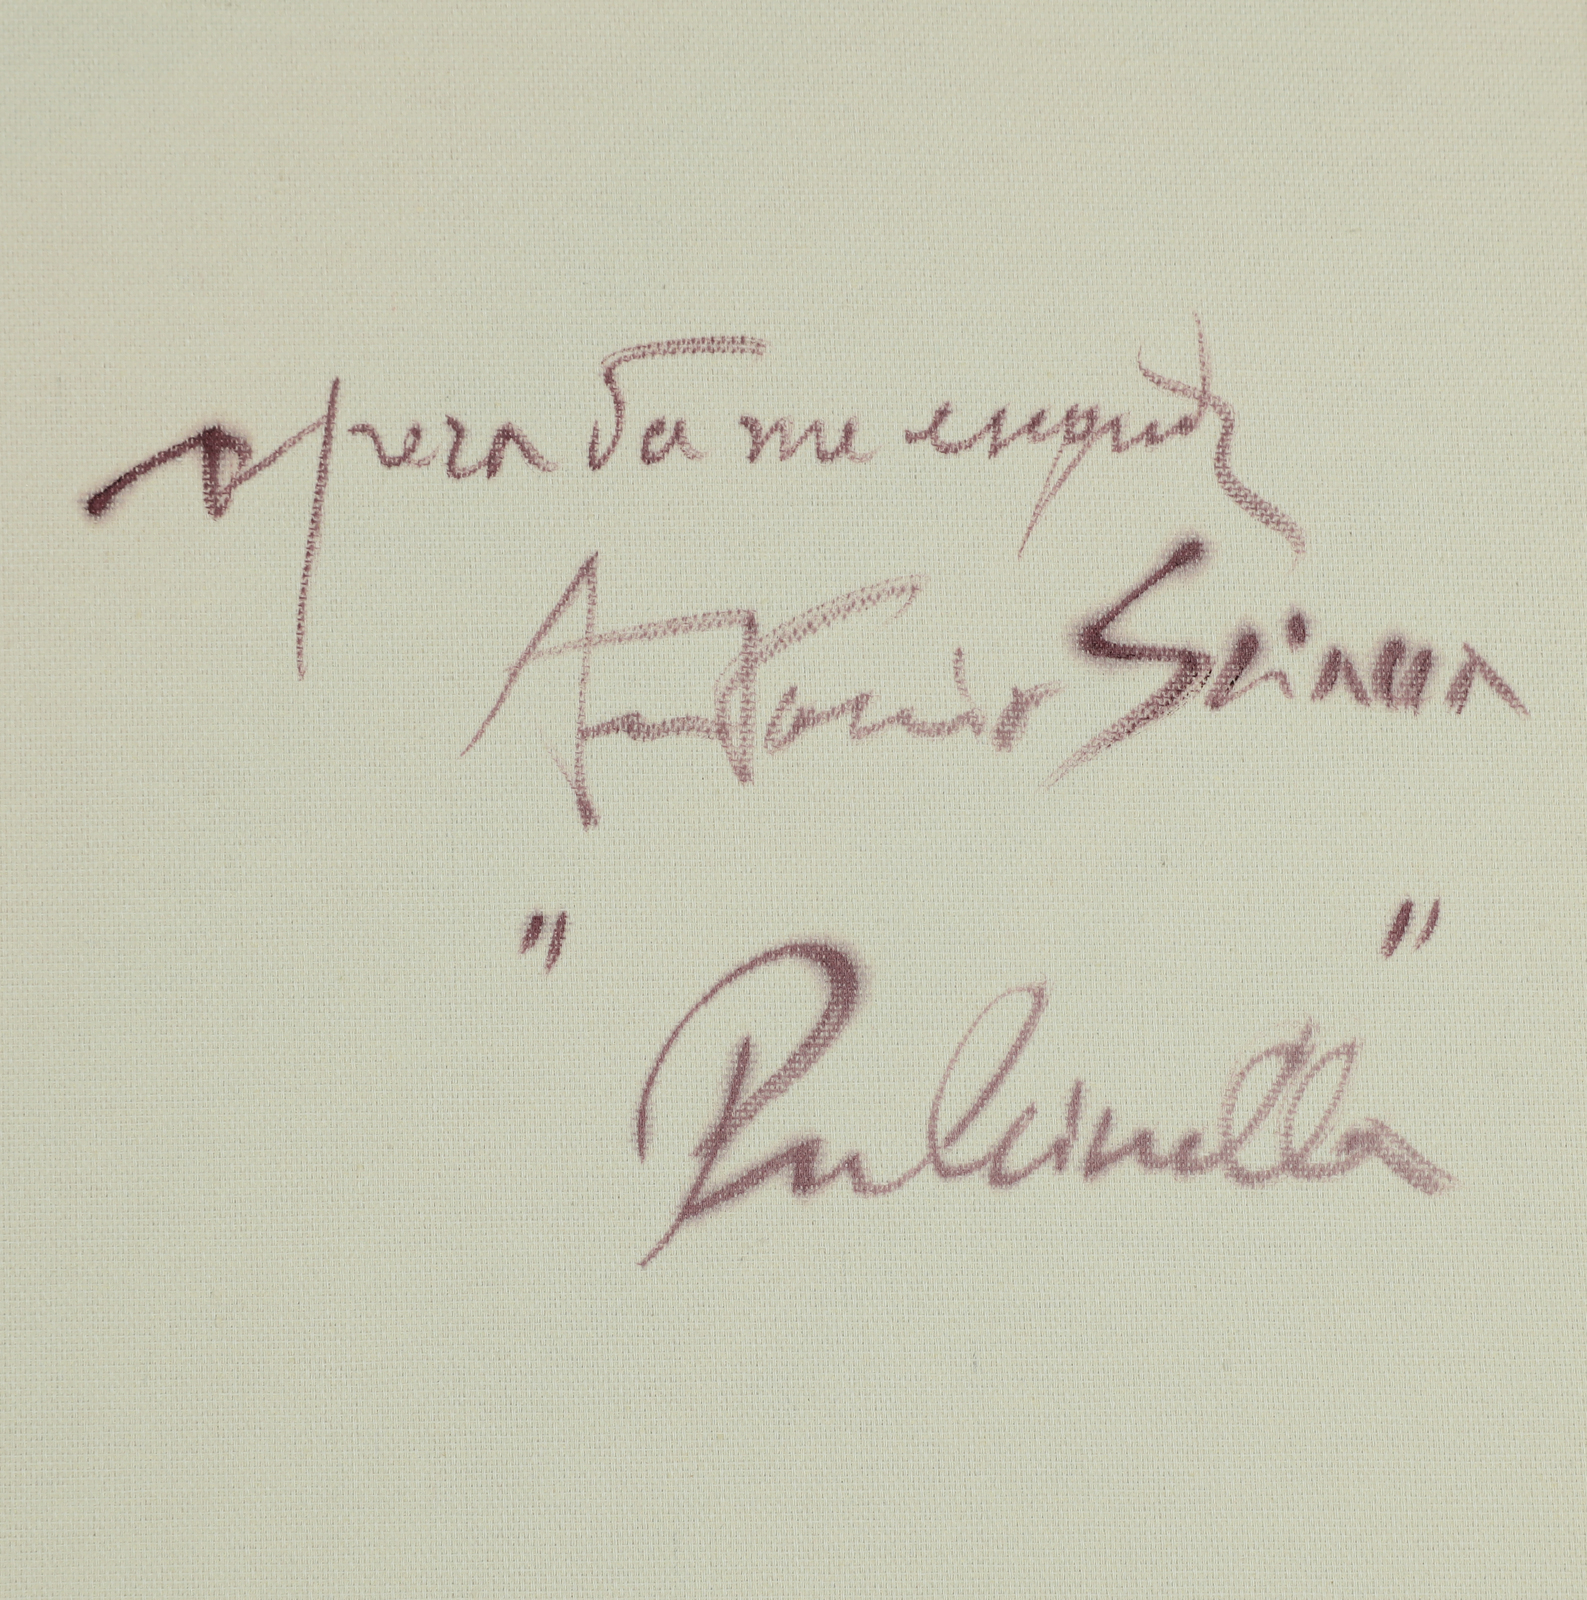 opera da me eseguita
Antonio Sciacca
" Pulcinella "